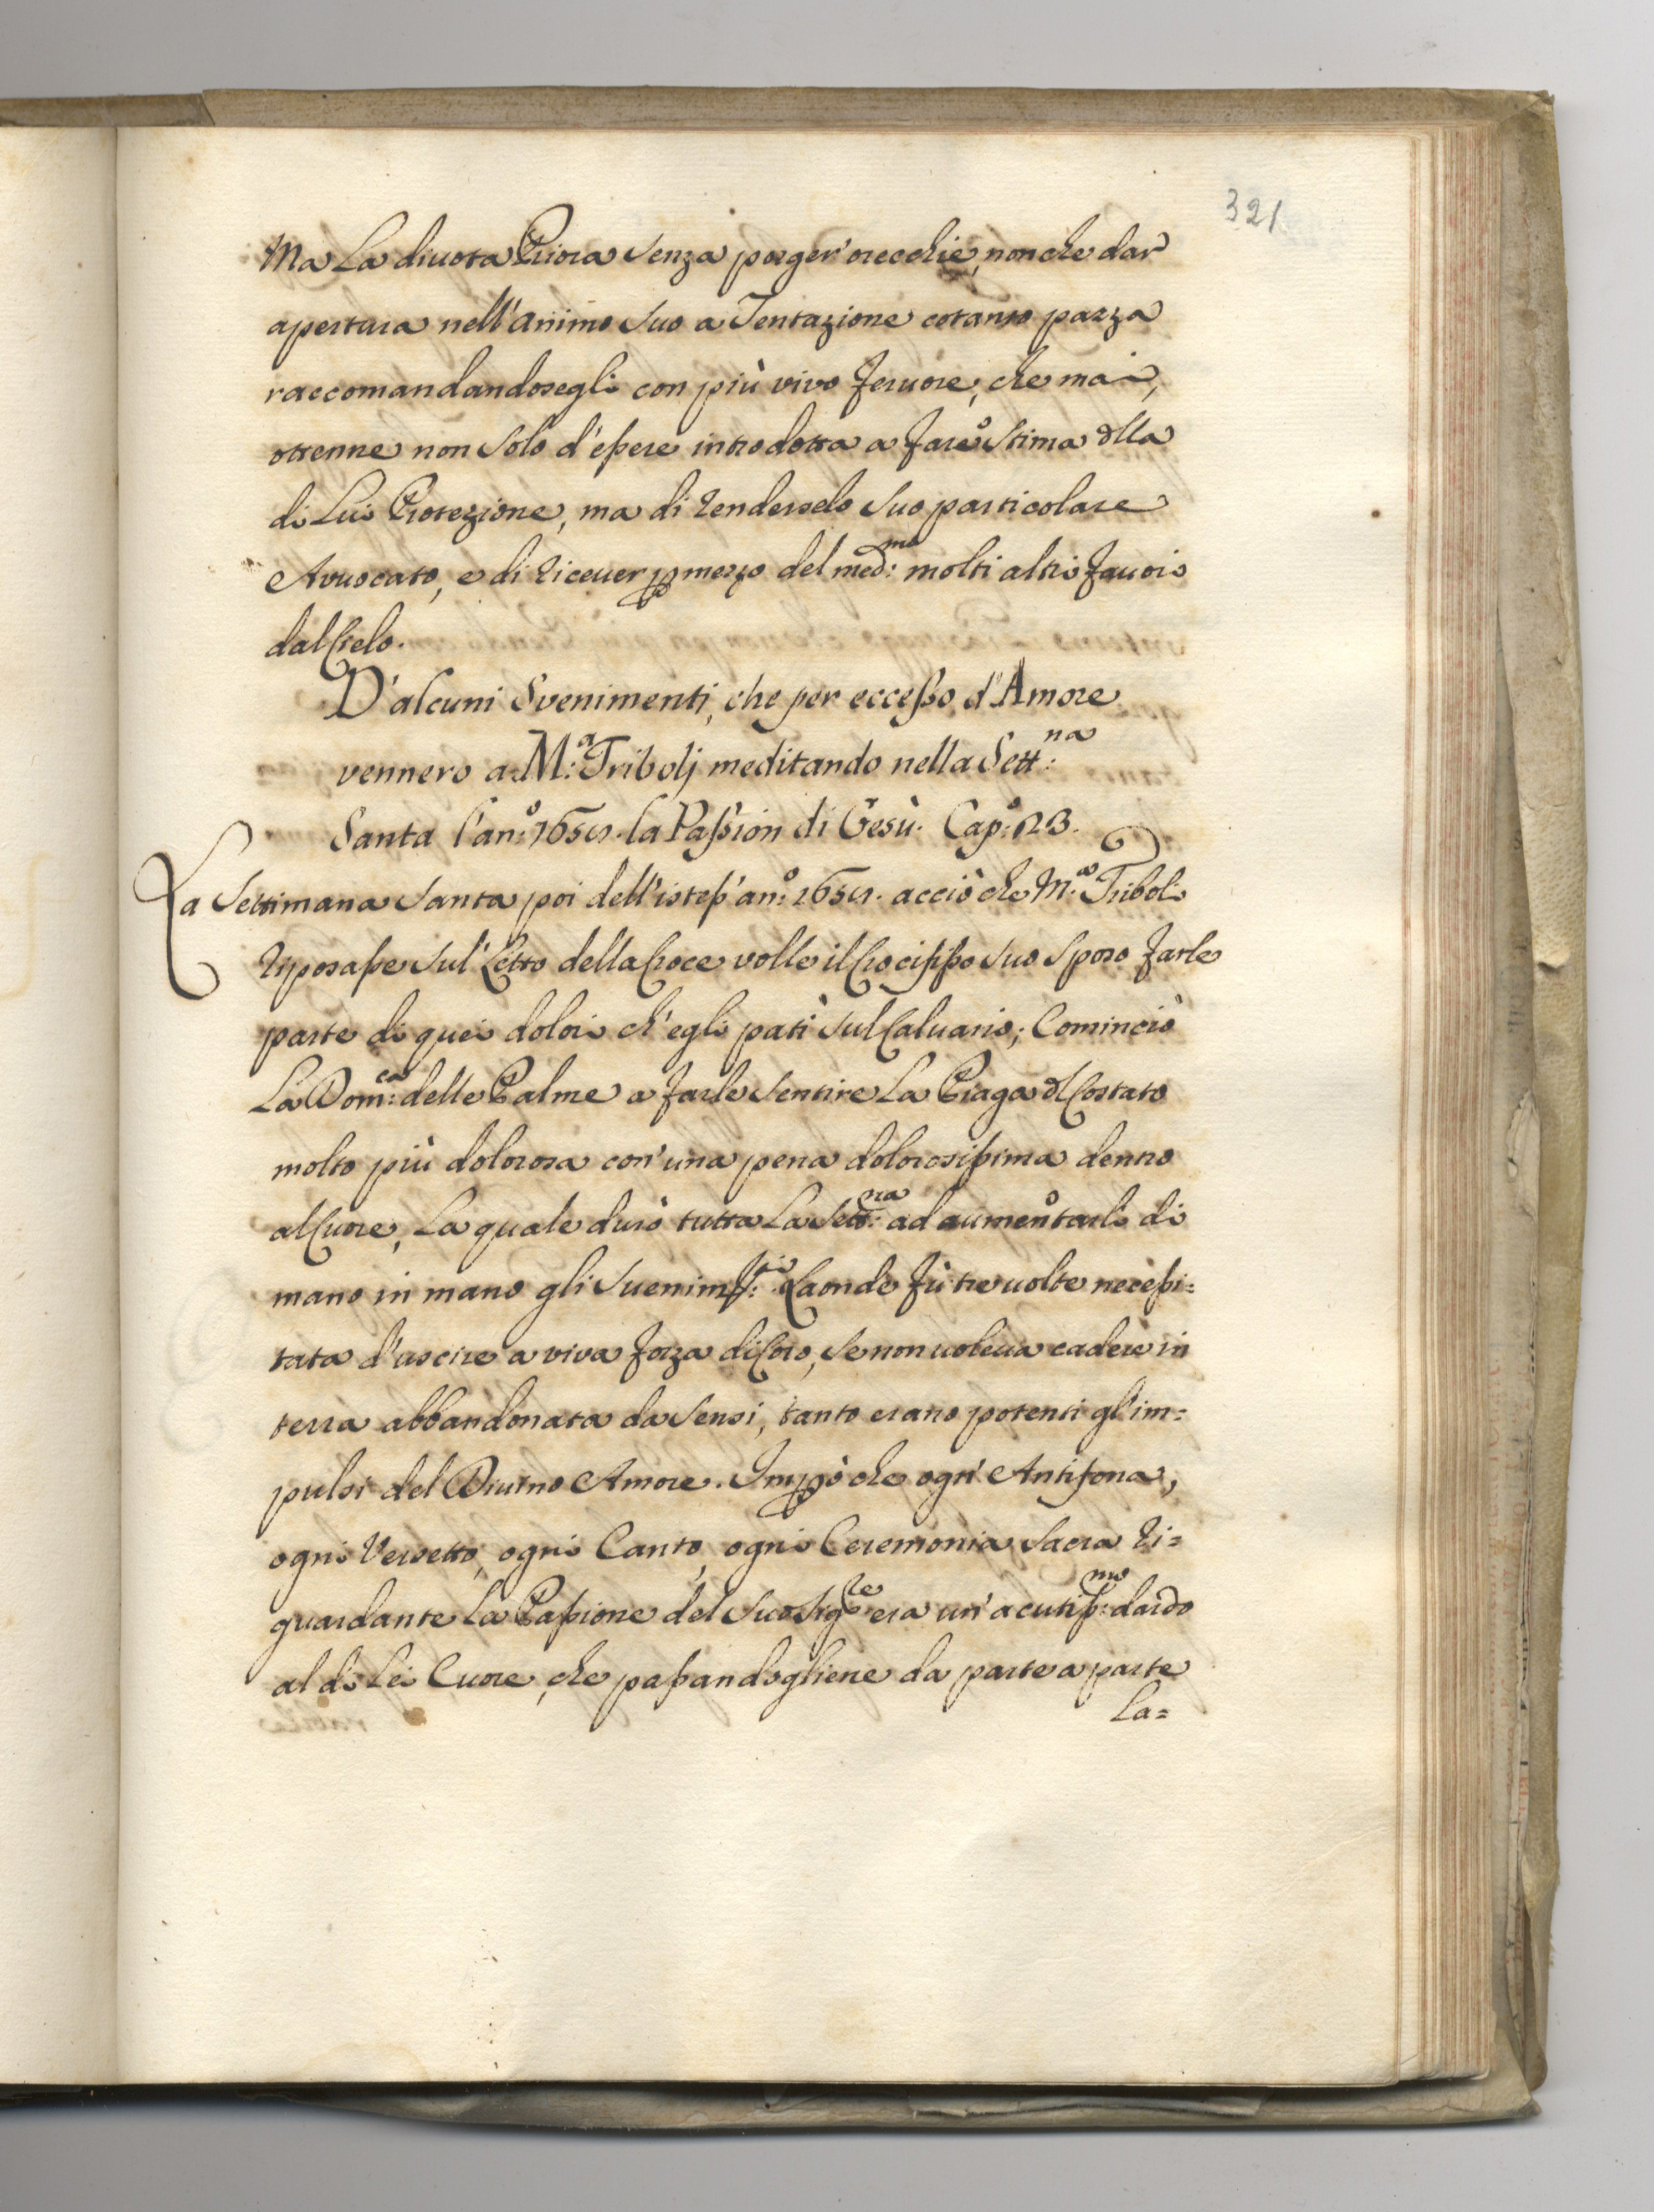 321
Ma La diuota Priora senza porger' orecchie, non che dar
apertura nell'animo suo a Tentazione cotanto pazza
raccomandandosegli con più vivo feruore, che mai,
ottenne non solo d'eßere introdotta a fare stima dlla
di Lui Protezione, ma di renderselo suo particolare
Avuocato, e di riceuer p mezzo del med:mo molti altri fauori
dal Cielo.
D'alcuni Svenimenti, che per ecceßo d'Amore
vennero a M:a Tribolj meditando nella Sett:na
Santa l'an:o la Paßion di Gesù. Cap:o 23.
La Settimana Santa poi dell'isteß'an:o acciò che M:a Triboli
riposaße sul Letto della Croce volle il Crocifißo suo Sposo farle
parte di quei dolori ch'egli patì sul Caluario; Cominciò
La Dom:ca delle Palme a farle sentire La Piaga dl Costato
molto più dolorosa con'una pena dolorosißima dentro
al Cuore, La quale durò tutta La Sett:na ad aumentarli di
mano in mano gli suenim:ti Laonde fù tre uolte neceßi=
tata d'uscire a viva forza di Coro, se non uoleua cadere in
terra abbandonata da sensi, tanto erano potenti gl'im=
pulsi del Diuino Amore. Impò che ogn' Antifona,
ogni Versetto, ogni Canto, ogni Ceremonia Sacra ri=
guardante La Paßione del suo Sig:re era un'acutiß:mo dardo
al di Lei Cuore, che paßandogliene da parte a parte
La=